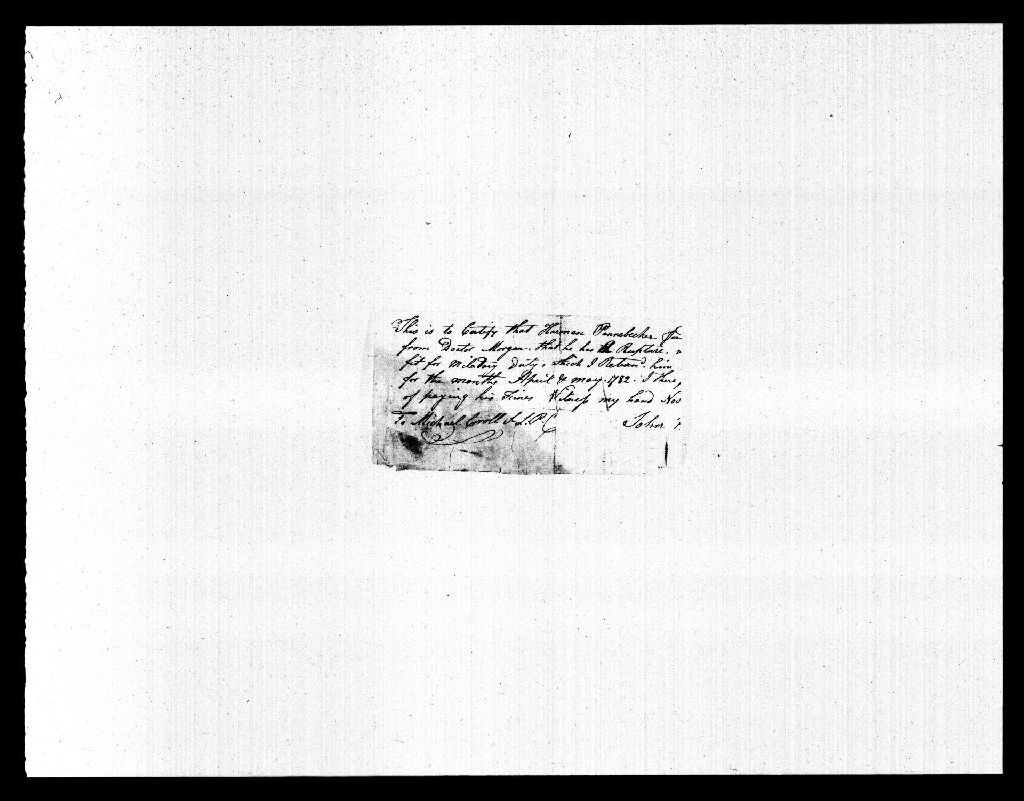 This is to Certify that Harman Pannebecker
from Doctor Morgan that he has the Rupture,
fit for Military Duty, which I Return'd him
for the months April & may 1782. I there,
of paying his Fines Witness my hand Nov
To Michael Croll S. L. P. C
John